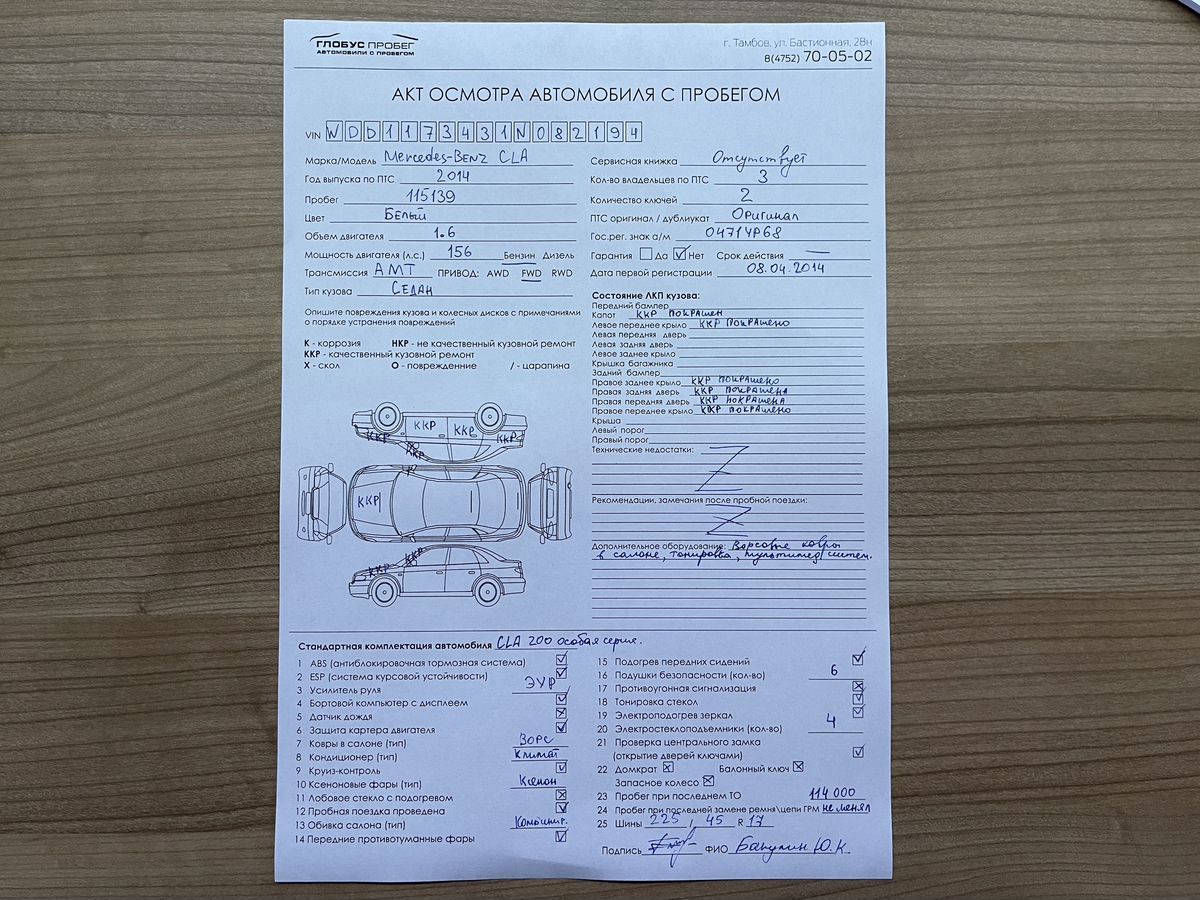 ГЛОБУС ПРОБЕГ
АВТОМОБИЛИ С ПРОБЕГОМ
г. Тамбов, ул. Бастионная, 28н
8(4752) 70-05-02
АКТ ОСМОТРА АВТОМОБИЛЯ С ПРОБЕГОМ
VIN WDD1173431N082194
Марка/Модель Mercedes-Benz CLA
Год выпуска по ПТС 2014
Пробег 115139
Цвет Белый
Объем двигателя 1.6
Мощность двигателя (л.с.) 156 Бензин Дизель
Трансмиссия АМТ ПРИВОД: AWD FWD RWD
Тип кузова Седан
Опишите повреждения кузова и колесных дисков с примечаниями
о порядке устранения повреждений
К - коррозия НКР - не качественный кузовной ремонт
ККР - качественный кузовной ремонт
Х - скол О - повреждение / - царапина
ККР ККР ККР ККР
ККР
ККР
ККР
ККР
Сервисная книжка Отсутствует
Кол-во владельцев по ПТС 3
Количество ключей 2
ПТС оригинал / дубликат Оригинал
Гос.рег. знак а/м О471УР68
Гарантия Да Нет Срок действия —
Дата первой регистрации 08.04.2014
Состояние ЛКП кузова:
Передний бампер
Капот ККР покрашен
Левое переднее крыло ККР покрашено
Левая передняя дверь
Левая задняя дверь
Левое заднее крыло
Крышка багажника
Задний бампер
Правое заднее крыло ККР покрашено
Правая задняя дверь ККР покрашена
Правая передняя дверь ККР покрашена
Правое переднее крыло ККР покрашено
Крыша
Левый порог
Правый порог
Технические недостатки:
Рекомендации, замечания после пробной поездки:
Дополнительное оборудование: Ворсовые ковры
в салоне, тонировка, мультимед. систем.
Стандартная комплектация автомобиля CLA 200 особая серия.
1 ABS (антиблокировочная тормозная система)
2 ESP (система курсовой устойчивости)
3 Усилитель руля ЭУР
4 Бортовой компьютер с дисплеем
5 Датчик дождя
6 Защита картера двигателя
7 Ковры в салоне (тип) Ворс
8 Кондиционер (тип) Климат
9 Круиз-контроль
10 Ксеноновые фары (тип) Ксенон
11 Лобовое стекло с подогревом
12 Пробная поездка проведена
13 Обивка салона (тип) Комбинир.
14 Передние противотуманные фары
15 Подогрев передних сидений
16 Подушки безопасности (кол-во) 6
17 Противоугонная сигнализация
18 Тонировка стекол
19 Электроподогрев зеркал
20 Электростеклоподъемники (кол-во) 4
21 Проверка центрального замка
(открытие дверей ключами)
22 Домкрат Балонный ключ
Запасное колесо
23 Пробег при последнем ТО 114 000
24 Пробег при последней замене ремня\цепи ГРМ не менял
25 Шины 225 / 45 R 17
Подпись ФИО Бакулин Ю.К.